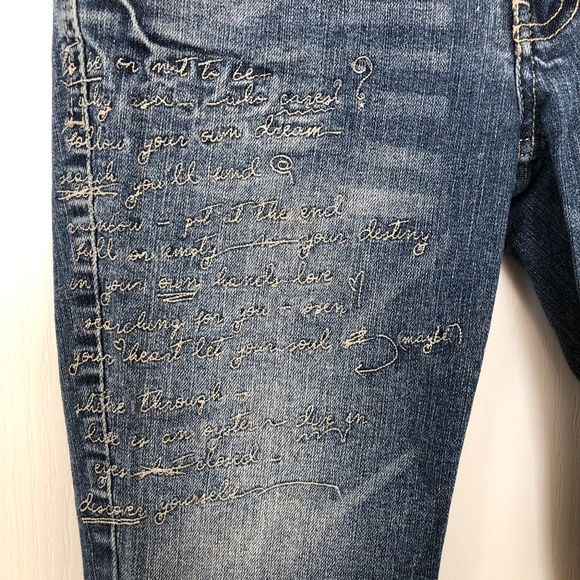 to be or not to be -
why ask - who cares? ?
follow your own dream
search you'll find
rainbow - pot at the end
full or empty your destiny
in your own hands love
searching for you - open
your heart let your soul (maybe)
shine through -
life is an oyster - dive in
eyes closed -
discover yourself